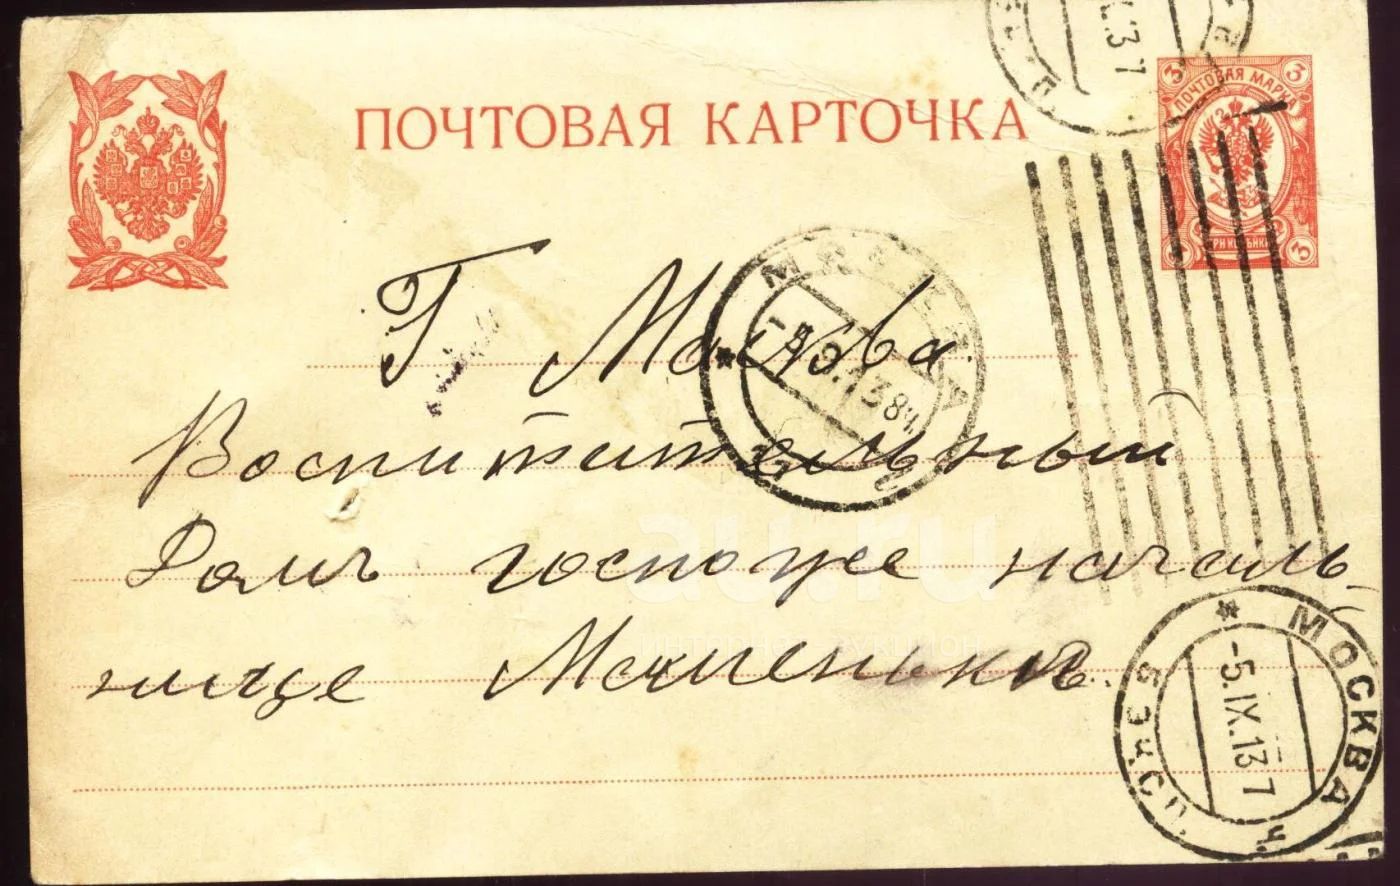 ПОЧТОВАЯ КАРТОЧКА
3 ПОЧТОВАЯ МАРКА 3
3
Г. Москва
Воспитительный
Домъ госпоже началь
нице
МОСКВА
-5.9.13 8Ч.
* МОСКВА
-5.IX.13 7 Ч.
5 ЭКСП.
au.ru
интернет аукцион